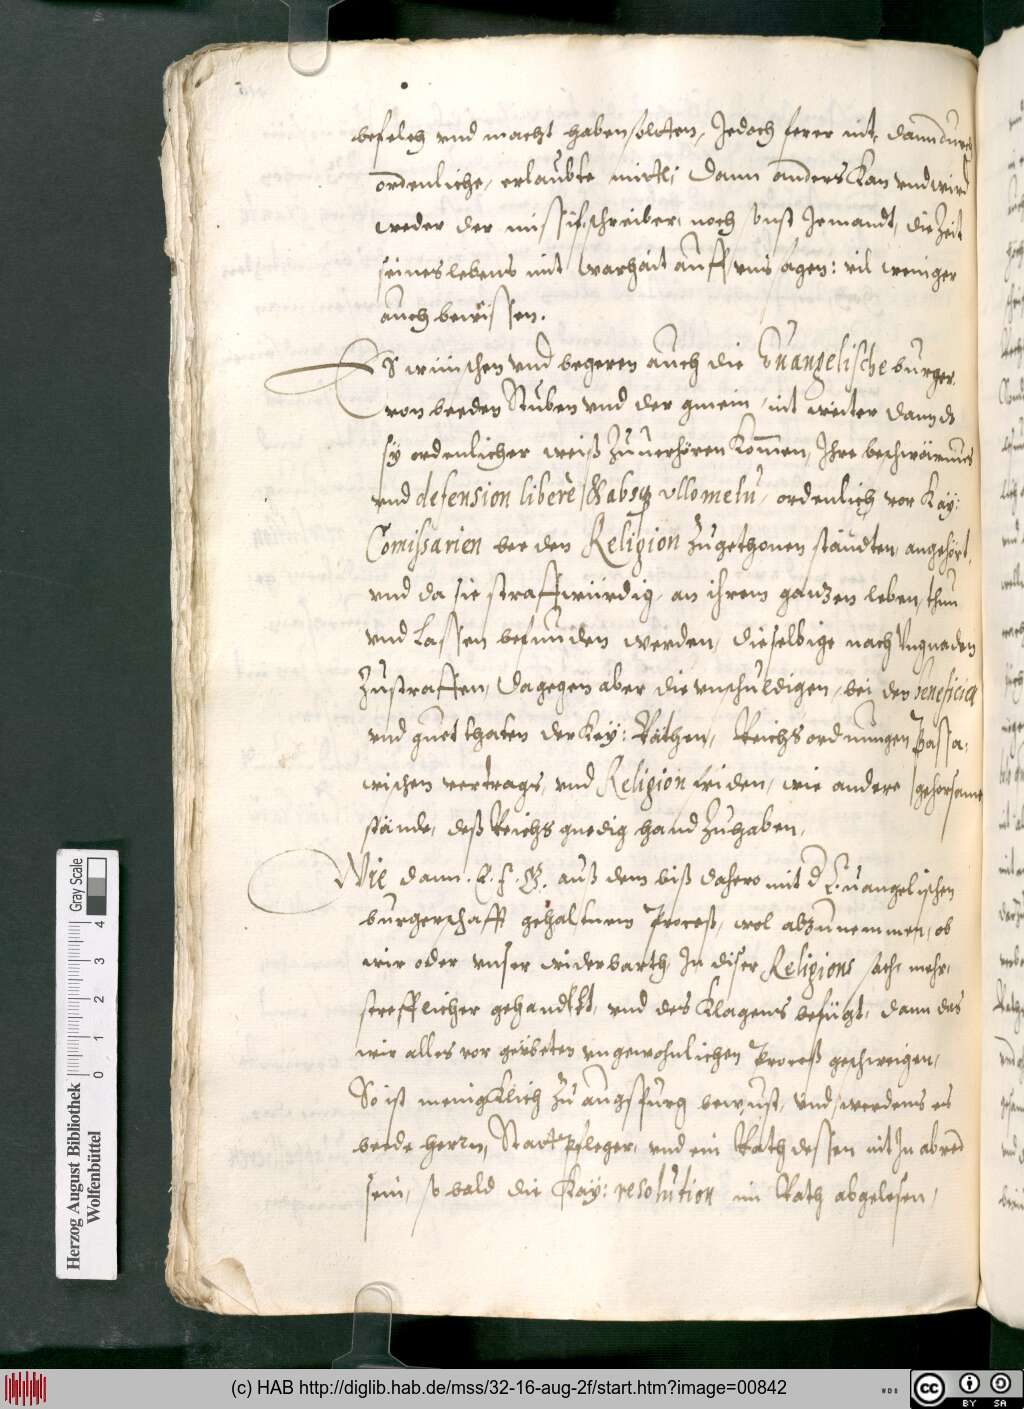 befelch vnd macht haben solten, Jedoch ferer nit, dann durch
ordenliche, erlaubte mittl; Dann anders kan vnd wird
weder der missifschreiber, noch sonst Jemandt, die Zeit
seines lebens mit warhait auff vns sagen: vil weniger
auch beweissen.
Es wünschen vnd begeren auch die Euangelische burger
von beeden Stuben vnd der gmein, nit weiter dann ds
sy ordenlicher weiß zuuerhören kommen, Ihre beschwärnus
vnd defension liberè, & absq vllo metu, ordenlich vor Kay:
Comissarien bee den Religion zugethonen ständten, angehört,
vnd da sie straffwürdig, an ihrem ganzen leben, thun
vnd Lassen befunden werden, dieselbige nach Vngnaden
zustraffen, Dagegen aber die vnschuldigen, bei den beneficia
vnd guet thaten der Kay: Räthen, Reichs ordnungen Passa,
wischen vertrags, vnd Religion friden, wie andere gehorsame
stände, deß Reichs gnedig handzuhaben,
Wie dann. E. F. G. auß dem biß dahero mit d Euangelischen
burgerschafft gehaltnem Proceß, wol abzunemmen, ob
wir oder vnser widerbarth, In diser Religions sach, mehr,
strefflicher gehandlet, vnd des Klagens befügt, dann das
wir alles vor geübeten vngewohnlichen Proceß geschweigen,
So ist menigklich zu augspurg bewust, vnd werdens es
beede herrn, Stattpfleger, vnd ein Rath dessen nit In abred
sein, so bald die Kay: resolution im Rath abgelesen,
Herzog August Bibliothek
Wolfenbüttel
0 1 2 3 4
Gray Scale
(c) HAB http://diglib.hab.de/mss/32-16-aug-2f/start.htm?image=00842
WDB
cc
BY SA